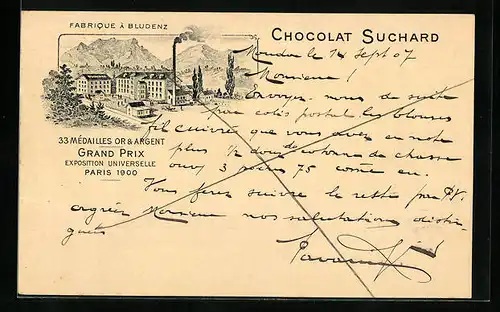 FABRIQUE À BLUDENZ
CHOCOLAT SUCHARD
33 MÉDAILLES OR & ARGENT
GRAND PRIX
EXPOSITION UNIVERSELLE
PARIS 1900
le 14 Sept 07
Monsieur!
Envoyez-nous de suite
par colis postal les
fil cuivre que vous avez en note
plus 1/2 de chasse
3 75
Vous ferez suivre le reste par
agréez Monsieur nos salutations distin-
guées